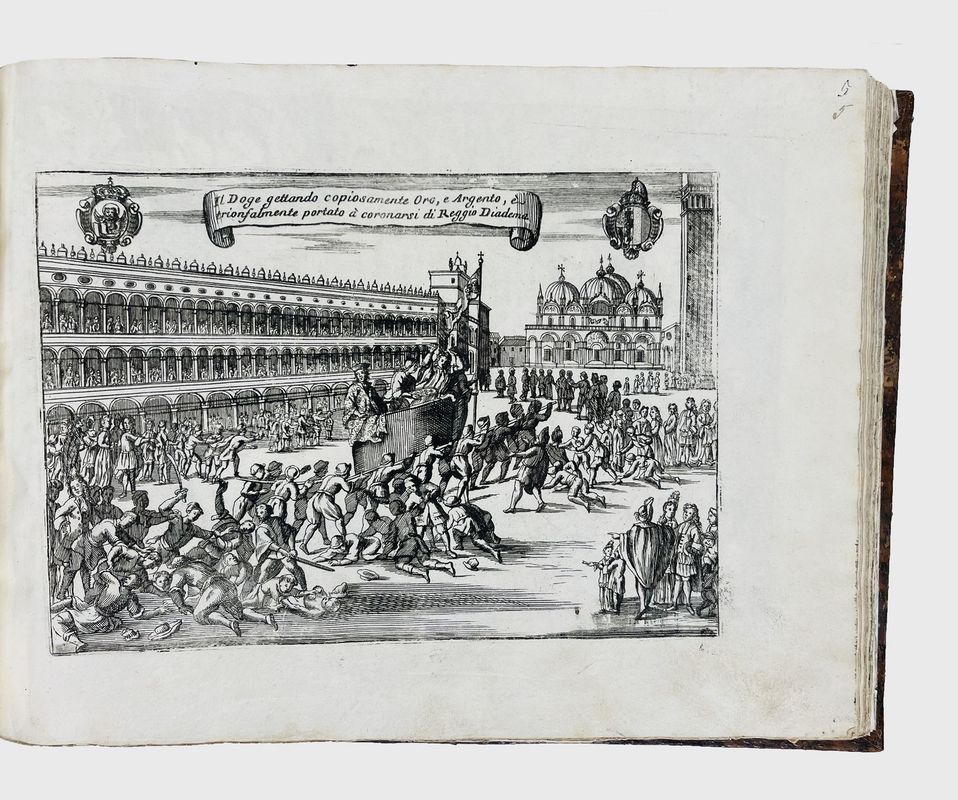 Il Doge gettando copiosamente Oro, e Argento, è
trionfalmente portato à coronarsi di Reggio Diadema
5
5